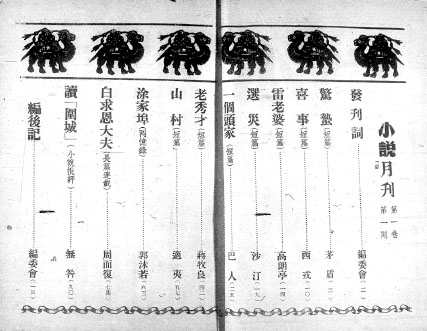 小說月刊
第一卷
第一期
發刊詞……編委會(一)
驚蟄(短篇)……茅盾
喜事(短篇)……西戎(一〇)
雷老婆(短篇)……高朗亭(一四)
選災(短篇)……沙汀
一個頭家(短篇)……巴人
老秀才(短篇)……蔣牧良
山村(短篇)……適夷(五七)
涂家埠(回憶錄)……郭沫若
白求恩大夫(長篇連載)……周而復(七四)
讀「圍城」(小說批評)……無咎(九〇)
編後記……編委會